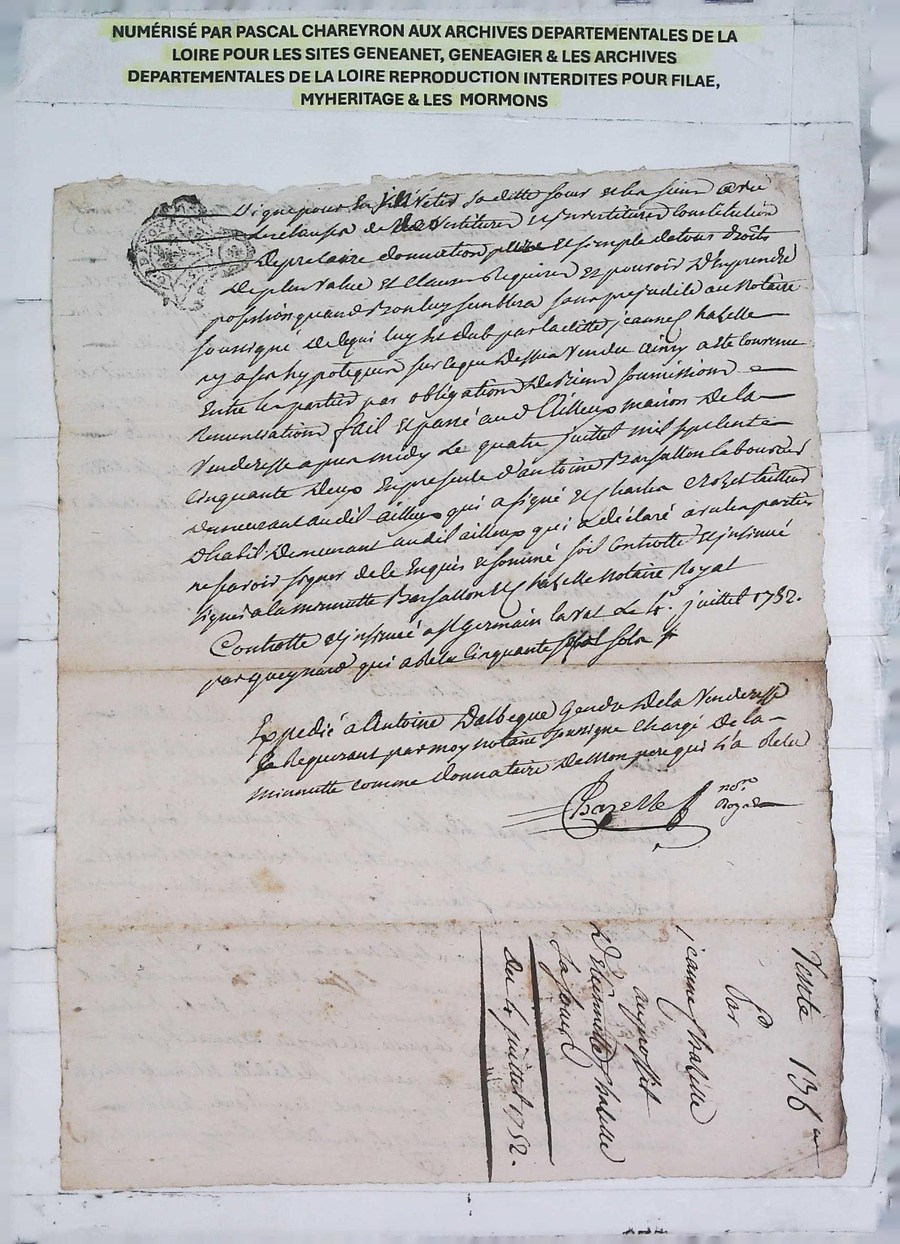 NUMÉRISÉ PAR PASCAL CHAREYRON AUX ARCHIVES DEPARTEMENTALES DE LA
LOIRE POUR LES SITES GENEANET, GENEAGIER & LES ARCHIVES
DEPARTEMENTALES DE LA LOIRE REPRODUCTION INTERDITES POUR FILAE,
MYHERITAGE & LES MORMONS
pour sa ditte sœur
clauses de constitution
de precaire donnation et simple de tous droits
de plus value et clauses requises et pouvoir d'en prendre
possession quand bon luy semblera sans prejudice au notaire
soussigné de ce qui luy est dub par la ditte jeanne Chazelle
hypoteques sur ce que dessus vendu ainsy a été convenu
Entre les parties par obligation de biens soumissions
Renunsiations fait et passé aud maison de la
Venderesse apres midy le quatre juillet mil sept cents
cinquante deux En presence d'antoine Barsallon laboureur
demeurant audit qui a signé et Charles tailleur
d'habit demeurant audit qui a déclaré
ne savoir signer de ce Enquis et sommé soit Controlle et insinué
signé a la minutte Barsallon et Chazelle notaire Royal
Controlle et insinué a St Germain laval le 4. juillet 1752.
par qui a Retu cinquante sept sols
Expedié a Antoine Dalbegue Gendre de la Venderesse
Ce Requerant par moy notaire soussigné chargé de la
minutte comme donnataire de mon pere qui l'a Retu
Chazelle nore.
Royal
Vente 136
Par
jeanne Chazelle
au proffit
D'Etiennette Chazelle
sa sœur
du 4 juillet 1752.